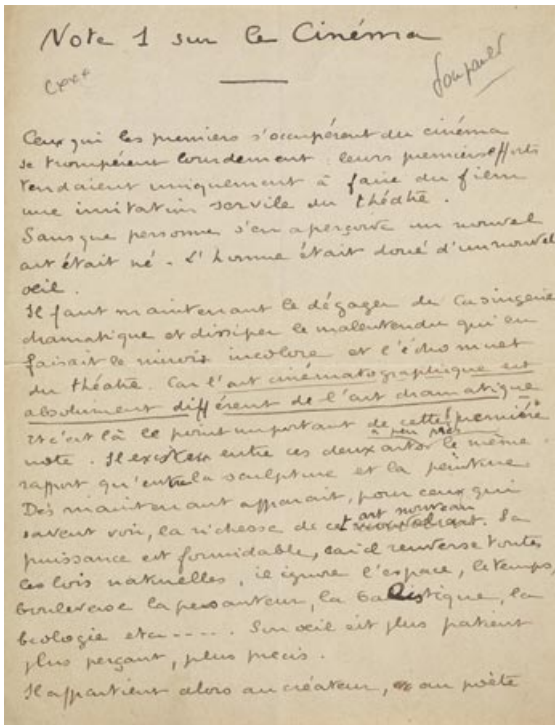 Note 1 sur le Cinéma
Soupault
Ceux qui les premiers s'occupèrent du cinéma
se trompèrent lourdement : leurs premiers efforts
tendaient uniquement à faire du film
une imitation servile du théâtre.
Sans que personne s'en aperçoive un nouvel
art était né. L'homme était doué d'un nouvel
œil.
Il faut maintenant le dégager de la singerie
dramatique et dissiper le malentendu qui en
faisait le miroir incolore et l'écho muet
du théâtre. Car l'art cinématographique est
absolument différent de l'art dramatique
et c'est là le point important de cette première
à peu près
note. Il existe entre ces deux arts le même
rapport qu'entre la sculpture et la peinture
Dès maintenant apparait, pour ceux qui
art nouveau
savent voir, la richesse de cet Sa
puissance est formidable, car il renverse toutes
les lois naturelles, il ignore l'espace, le temps,
bouleverse la pesanteur, la balistique, la
biologie etc..... Son œil est plus patient
plus perçant, plus précis.
Il appartient alors au créateur, au poète